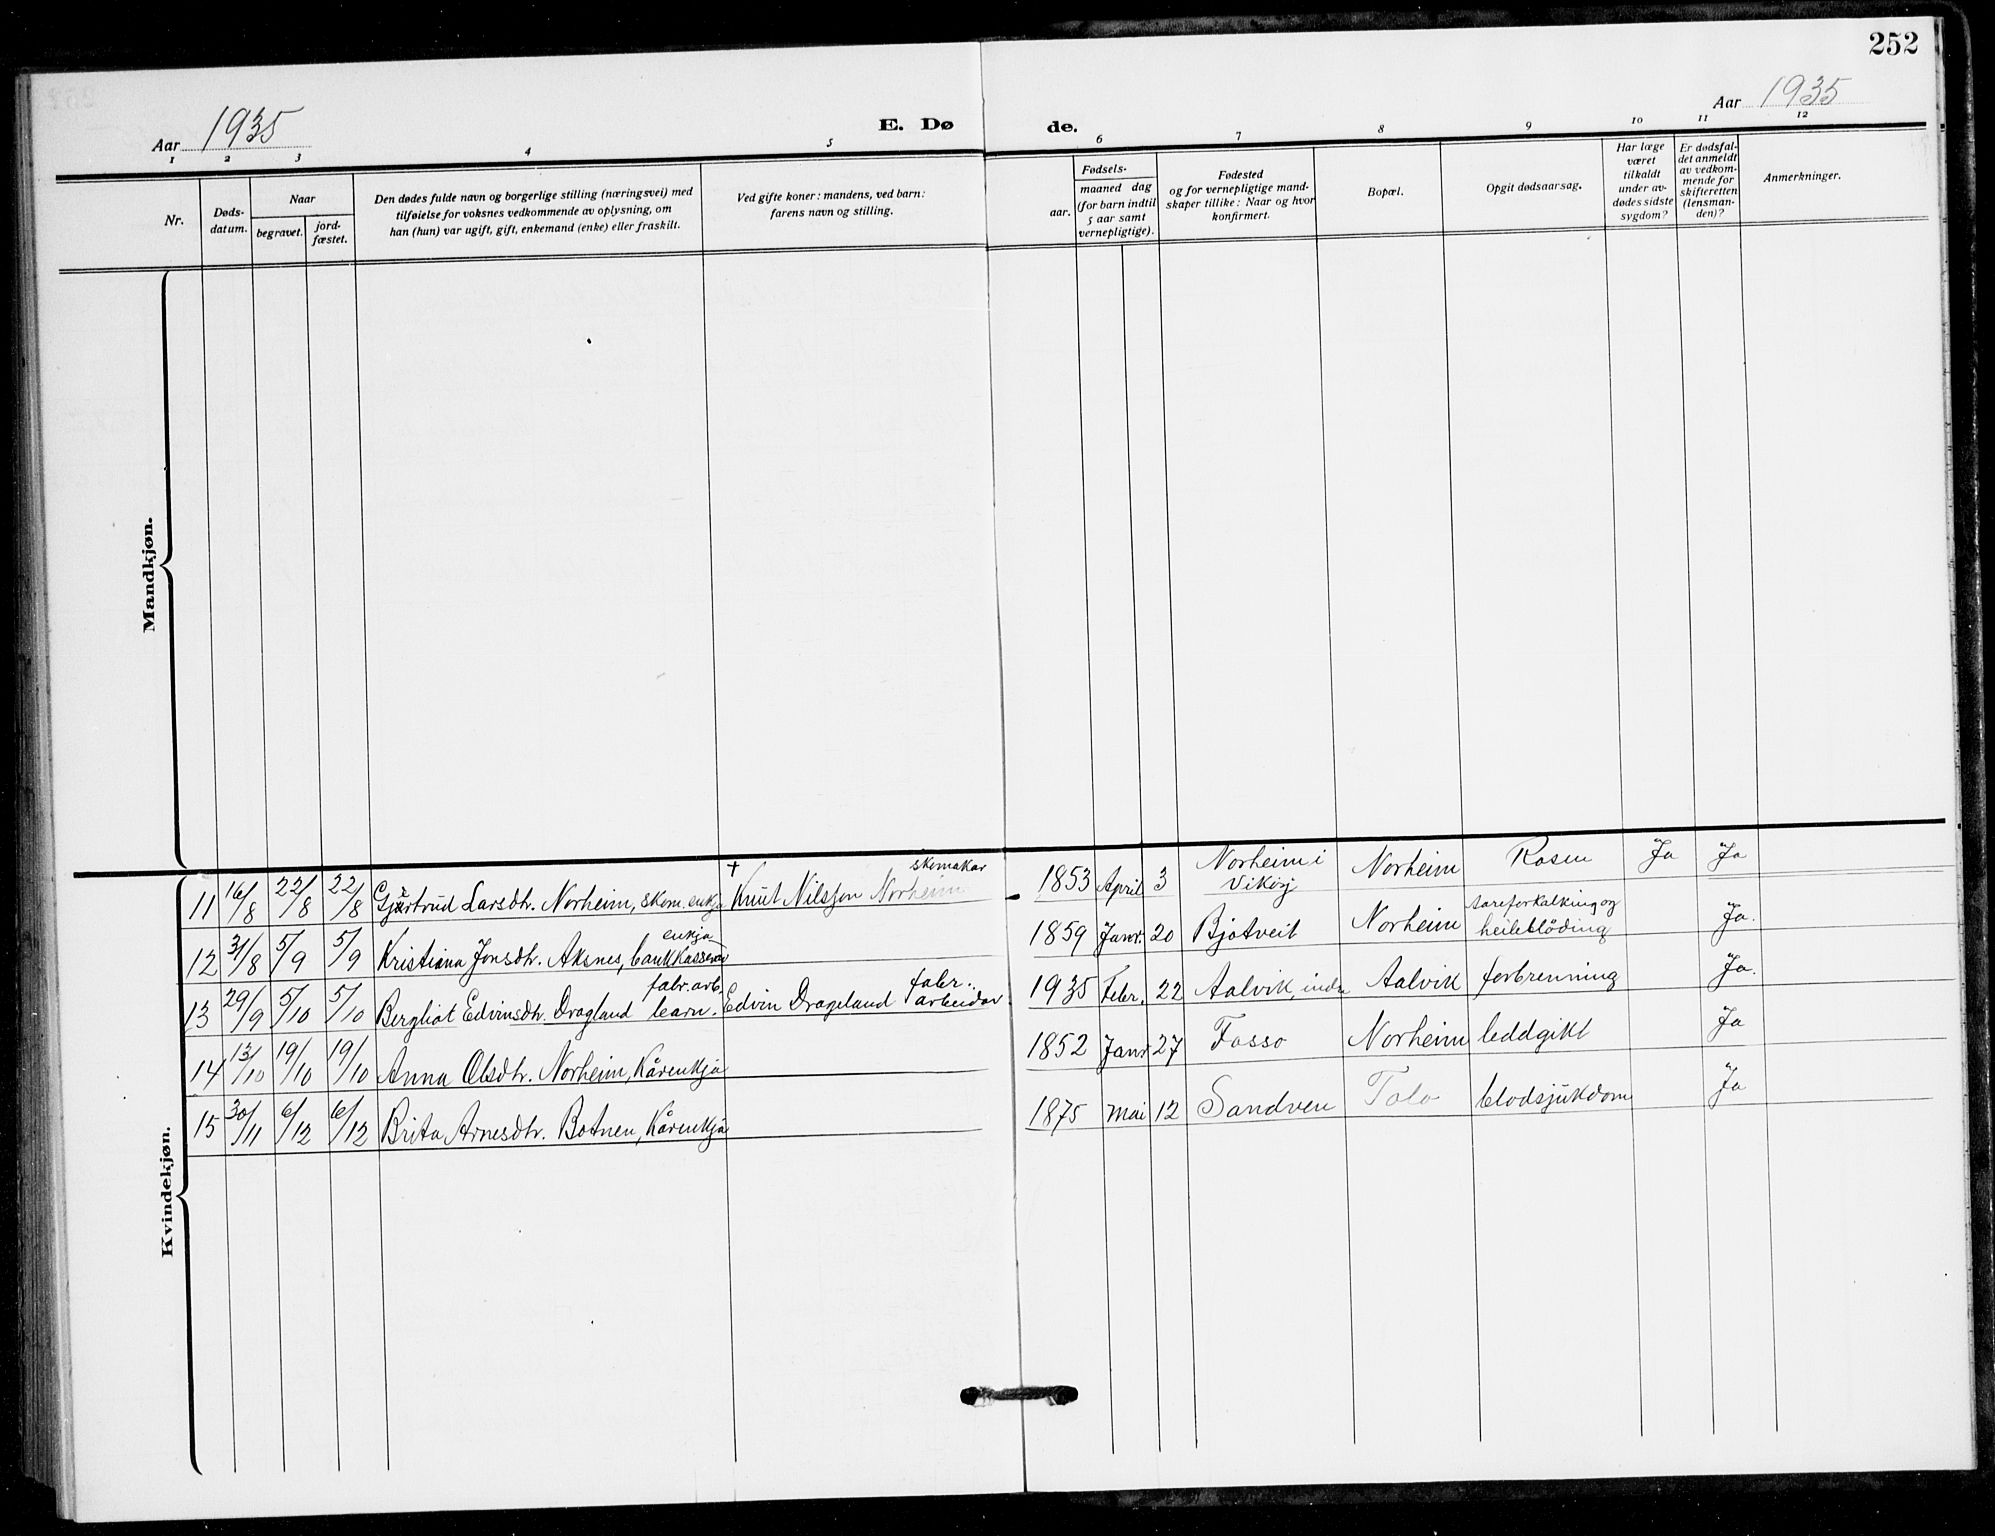 252
Aar 1935
E. Dø de.
Aar 1935
1 2 3 4 5 6 7 8 9 10 11 12
Nr.
Døds-
datum.
Naar
begravet.
jord-
fæstet.
Den dødes fulde navn og borgerlige stilling (næringsvei) med
tilføielse for voksnes vedkommende av oplysning, om
han (hun) var ugift, gift, enkemand (enke) eller fraskilt.
Ved gifte koner: mandens, ved barn:
farens navn og stilling.
Fødsels-
aar.
maaned dag
(for barn indtil
5 aar samt
vernepligtige).
Fødested
og for vernepligtige mand-
skaper tillike: Naar og hvor
konfirmert.
Bopæl.
Opgit dødsaarsag.
Har læge
været
tilkaldt
under av-
dødes sidste
sygdom?
Er dødsfal-
det anmeldt
av vedkom-
mende for
skifteretten
(lensman-
den)?
Anmerkninger.
Mandkjøn.
Kvindekjøn.
11 16/8 22/8 22/8 Gjertrud Larsdtr. Norheim, skom. enkja + Knut Nilsson Norheim skomakar 1853 April 3 Norheim i Vikøy Norheim Rosen Ja Ja
12 31/8 5/9 5/9 Kristiana Jonsdtr. Aksnes, bankkasserar enkja 1859 Janr. 20 Bjotveit Norheim aareforkalking og heileblöding Ja.
13 29/9 5/10 5/10 Bergliot Edvinsdtr. Dragland fabr. arb. barn. Edvin Drageland fabr. arbeidar 1935 Febr. 22 Aalvik, indre Aalvik forbrenning Ja.
14 13/10 19/10 19/10 Anna Olsdtr. Norheim, Kårenkja 1852 Janr 27 Fosso Norheim leddgikt Ja
15 30/11 6/12 6/12 Brita Arnesdtr. Botnen, Kårenkja 1875 Mai 12 Sandven Tolo blodsjukdom Ja